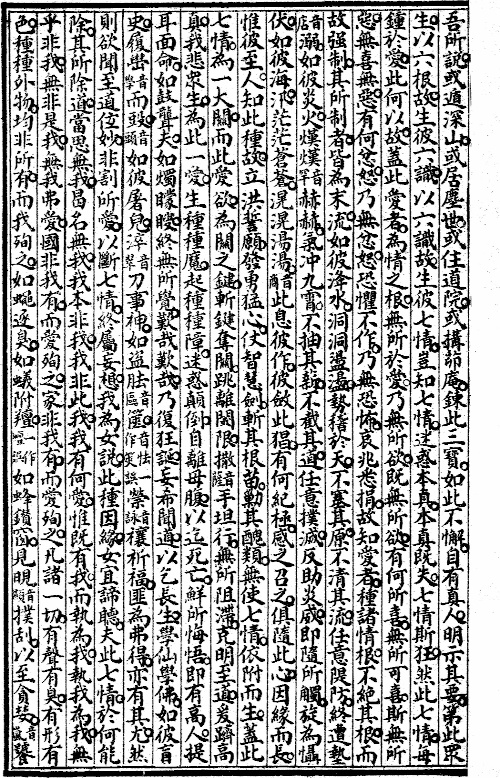 吾所說或遁深山或居塵世或住道院或搆茆庵鍊此三寶如此不懈自有真人明示其要第此眾
生以六根故生彼六識以六識故生彼七情豈知七情迷惑本真本真既失七情斯狂然此七情毋
鍾於愛此何以故蓋此愛者為情之根無所於愛乃無所欲既無所欲有何所喜無所可喜斯無所
惡無喜無惡有何忿怒乃無忿怒恐懼不作乃無恐怖哀兆悉捐故知愛者種諸情根不絕其根而
故强制其所制者皆為末流如彼洚水洞洞盪盪勢稽於天不塞其原不清其流任意隄防終遭墊
溺如彼炎火熯熯音罕赫赫氣冲九霄不抽其薪不截其道任意撲滅反助炎威即隨所觸旋為懾
伏如彼海汛茫茫蒼蒼滉滉湯湯音商此息彼作彼啟此猖有何紀極感之召之俱隨此心因緣而長
惟彼至人知此種故立洪誓願發勇猛心仗智慧劍斬其根苗勦其醜類無使七情依附而生蓋此
七情為一大關而此愛欲為關之鍵斬鍵奪關跳離關限撒手坦行無所阻滯克明至道爰躋高
真我悲眾生為此一愛生種種魔起種種障迷惑顛倒自離母腹以迄死亡鮮所悔悟即有高人提
耳面命如鼓聾夫如燭矇瞍終無所覺歎哉歎哉乃復狂誕妄希聞道以乞長生學仙學佛如彼盲
史履嶨音學而頭如彼屠兒淬音翠刀事神如盜胠音區篋音怯一作笑誤禜音詠禳祈福匪為弗得亦有其尤然
則欲聞至道位妙非割所愛以斷七情終屬妄想我為女說此種因緣女宜諦聽夫此七情於何能
除其所除道當思無我曷名無我我本非我我非此我我有何愛惟既有我而執為我執我為我無
乎非我無非是我無我弗愛國非我有而愛殉之家非我有而愛殉之凡諸一切有聲有臭有形有
色種種外物均非所有而我殉之如蠅逐臭如蟻附羶一作膻誤如蜂鑽窗見晛音現撲刮以至貪婪音嵐饕